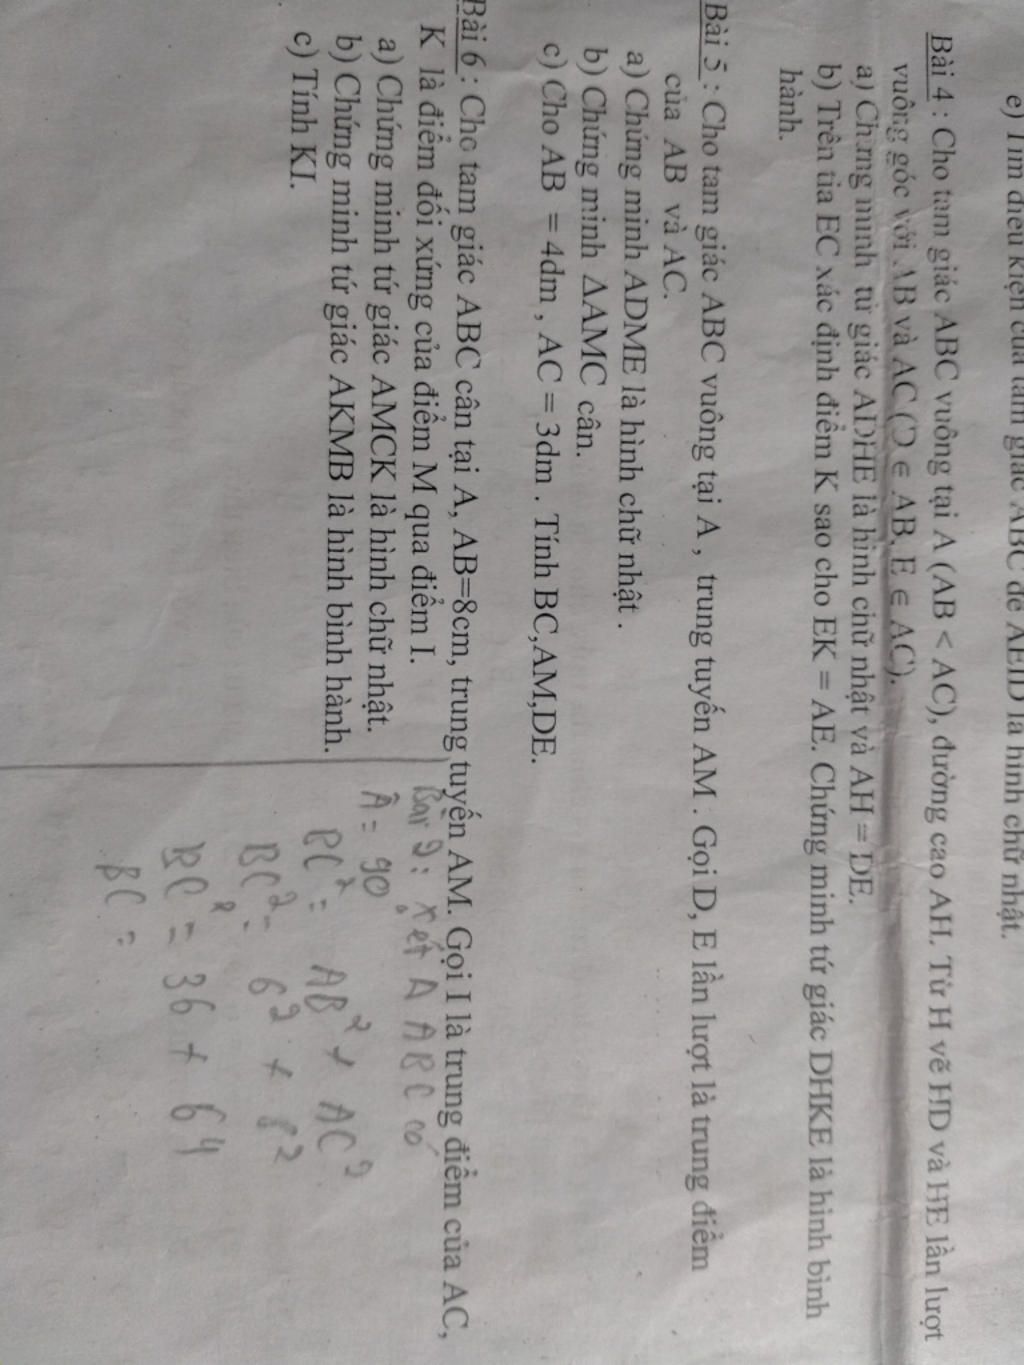 e) Tìm điều kiện của tam giác ABC để AEHD là hình chữ nhật.
Bài 4 : Cho tam giác ABC vuông tại A (AB < AC), đường cao AH. Từ H vẽ HD và HE lần lượt
vuông góc với AB và AC (D ∈ AB, E ∈ AC).
a) Chứng minh tứ giác ADHE là hình chữ nhật và AH = DE.
b) Trên tia EC xác định điểm K sao cho EK = AE. Chứng minh tứ giác DHKE là hình bình
hành.
Bài 5 : Cho tam giác ABC vuông tại A , trung tuyến AM . Gọi D, E lần lượt là trung điểm
của AB và AC.
a) Chứng minh ADME là hình chữ nhật .
b) Chứng minh ΔAMC cân.
c) Cho AB = 4dm , AC = 3dm . Tính BC,AM,DE.
Bài 6 : Cho tam giác ABC cân tại A, AB=8cm, trung tuyến AM. Gọi I là trung điểm của AC,
K là điểm đối xứng của điểm M qua điểm I.
a) Chứng minh tứ giác AMCK là hình chữ nhật.
b) Chứng minh tứ giác AKMB là hình bình hành.
c) Tính KI.
Bài 9: Xét Δ ABC có
Â = 90°
BC² = AB² + AC²
BC² = 6² + 8²
BC² = 36 + 64
BC =